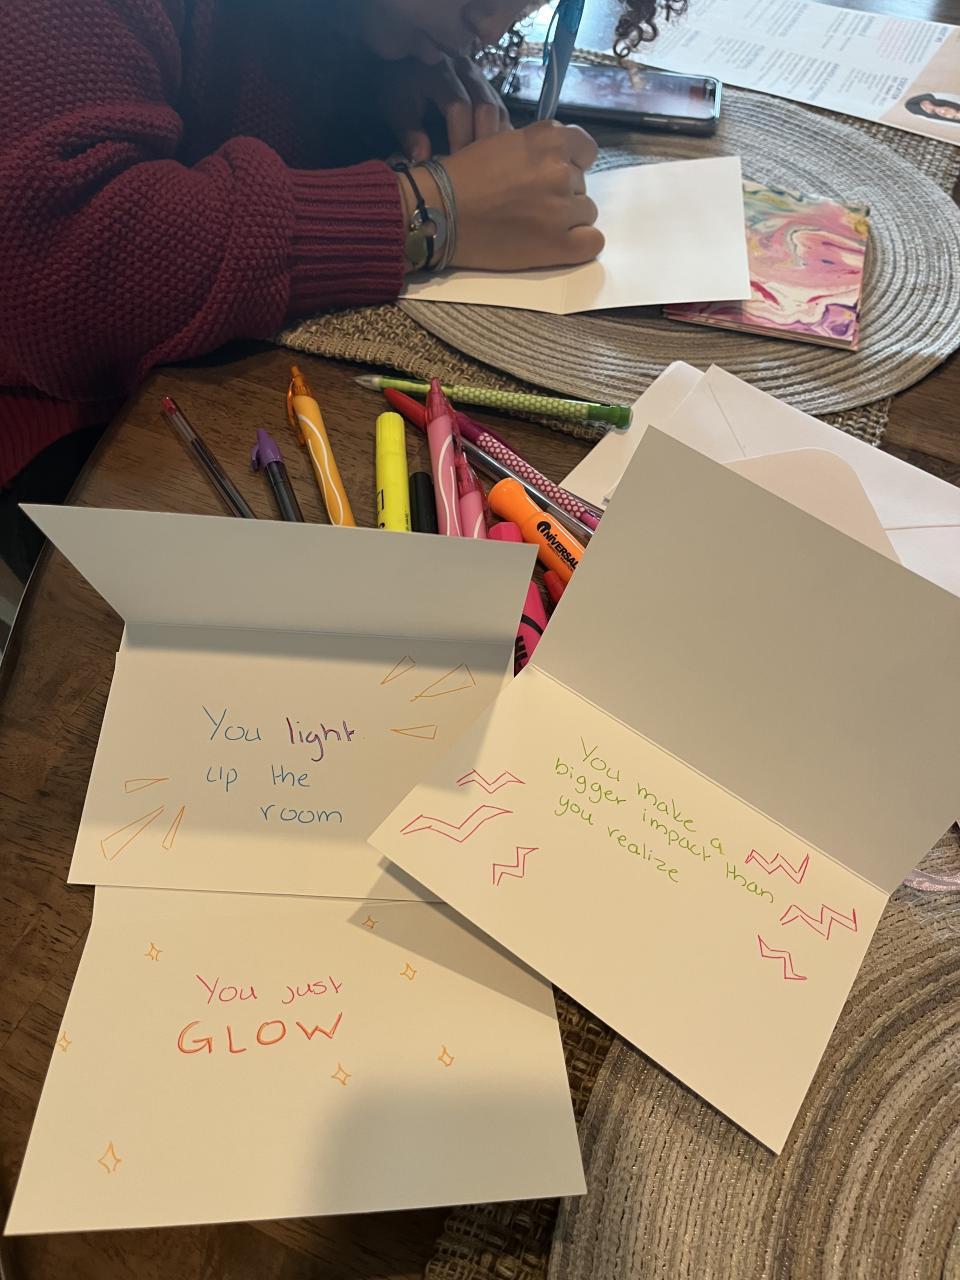 UNIVERSAL
You light
up the
room
You make a
bigger impact than
you realize
You just
GLOW